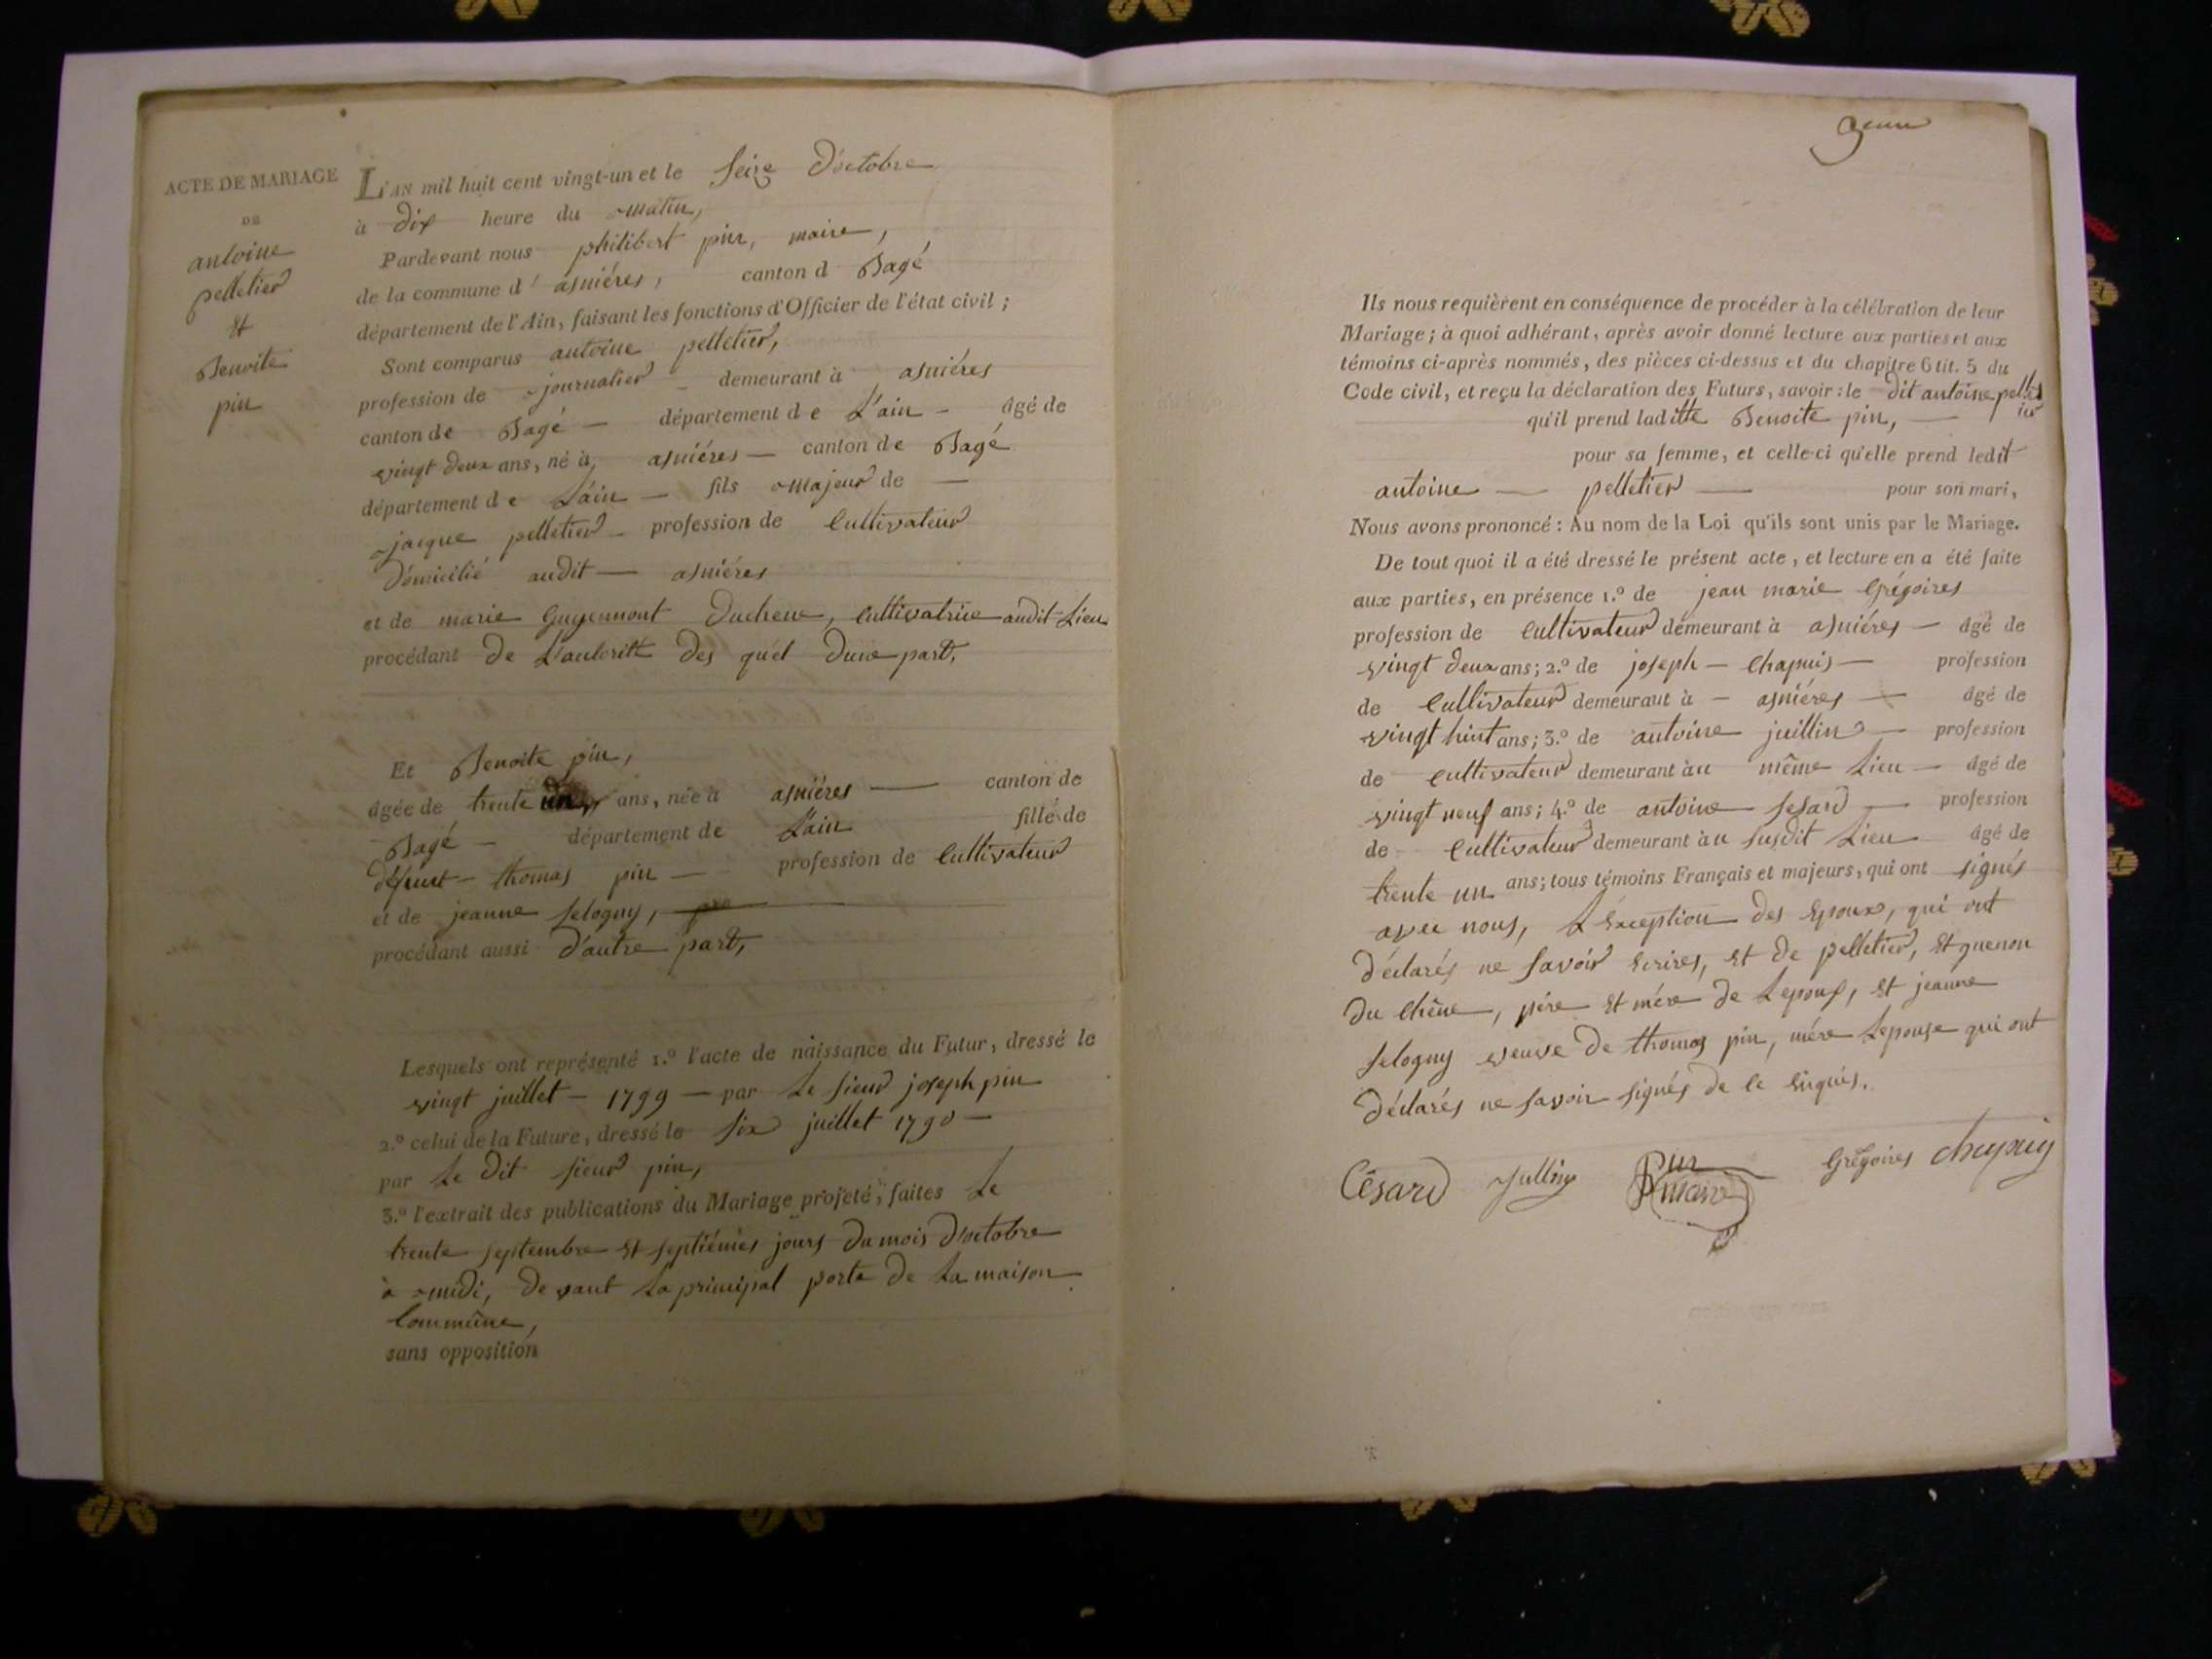 ACTE DE MARIAGE
DE
antoine
pelletier
Et
Benoite
pin
L'AN mil huit cent vingt-un et le seize D'octobre
à dix heure du matin,
Pardevant nous philibert pin, maire,
de la commune d' asniéres, canton d Bagé
département de l'Ain, faisant les fonctions d'Officier de l'état civil ;
Sont comparus antoine pelletier,
profession de journalier - demeurant à asniéres
canton de Bagé — département de L'ain - âgé de
vingt deux ans, né à asniéres — canton de Bagé
département de L'ain — fils majeur de —
jacque pelletier - profession de Cultivateur
Domicilié audit — asniéres
et de marie Guyennont Duchene, Cultivatrice audit Lieu
procédant De L'autorité des quél Dune part,
Et Benoite pin,
âgée de trente un ans, née à asniéres — canton de
Bagé — département de L'ain fille de
défunt - thomas pin — profession de Cultivateur
et de jeanne selogny,
procédant aussi D'autre part,
Lesquels ont représenté 1.º l'acte de naissance du Futur, dressé le
vingt juillet — 1799 — par Le sieur joseph pin
2.º celui de la Future, dressé le six juillet 1790 —
par Le Dit sieur pin,
3.º l'extrait des publications du Mariage projeté, faites Le
trente septembre Et septiémes jours Du mois D'octobre
à midi, De vant La principal porte De La maison
Commûne,
sans opposition
Ils nous requièrent en conséquence de procéder à la célébration de leur
Mariage ; à quoi adhérant, après avoir donné lecture aux parties et aux
témoins ci-après nommés, des pièces ci-dessus et du chapitre 6 tit. 5 du
Code civil, et reçu la déclaration des Futurs, savoir : le dit antoine pellet
ier
qu'il prend laditte Benoite pin, —
pour sa femme, et celle-ci qu'elle prend ledit
antoine — pelletier — pour son mari,
Nous avons prononcé : Au nom de la Loi qu'ils sont unis par le Mariage.
De tout quoi il a été dressé le présent acte, et lecture en a été faite
aux parties, en présence 1.º de jean marie Grégoires
profession de Cultivateur demeurant à asniéres — âgé de
vingt deux ans ; 2.º de joseph — Chapuis — profession
de Cultivateur demeurant à - asniéres — âgé de
vingt huit ans ; 3.º de antoine juillin — profession
de cultivateur demeurant àu même Lieu — âgé de
vingt neuf ans ; 4.º de antoine sesard — profession
de Cultivateur demeurant àu susdit Lieu âgé de
trente un ans ; tous témoins Français et majeurs, qui ont signés
avec nous, L'éxception Des Epoux, qui ont
Déclarés ne savoir Ecrires, Et De pelletier, Et guenon
Du Chêne, pére Et mére De Lepoux, Et jeanne
selogny veuve De thomas pin, mére Lepouse qui ont
Déclarés ne savoir signés De Ce Enquis.
Césard Jullin Pin
maire Grégoires chapuis